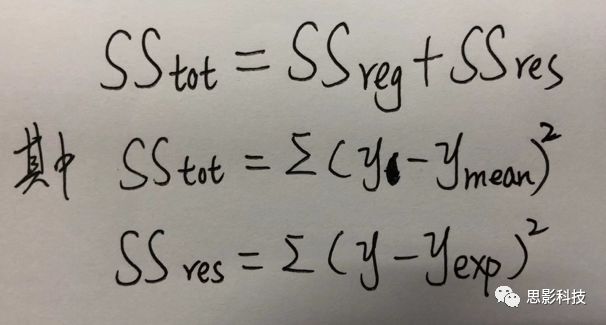 SS_tot = SS_reg + SS_res
其中 SS_tot = Σ(y - y_mean)²
SS_res = Σ(y - y_exp)²
思影科技